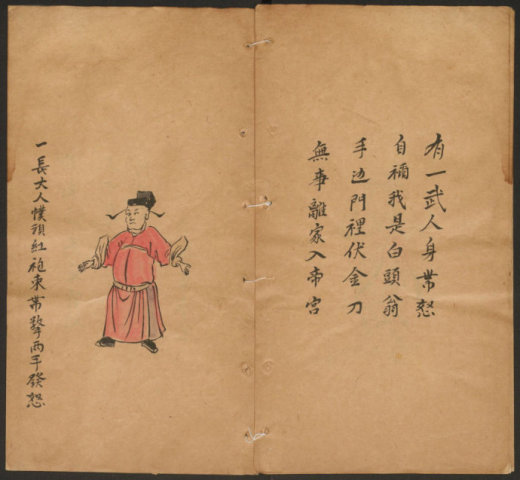 有一武人身帶怒
自稱我是白頭翁
手边門裡伏金刀
無事離家入帝宮
一長大人幞頭紅袍束帶擎両手發怒